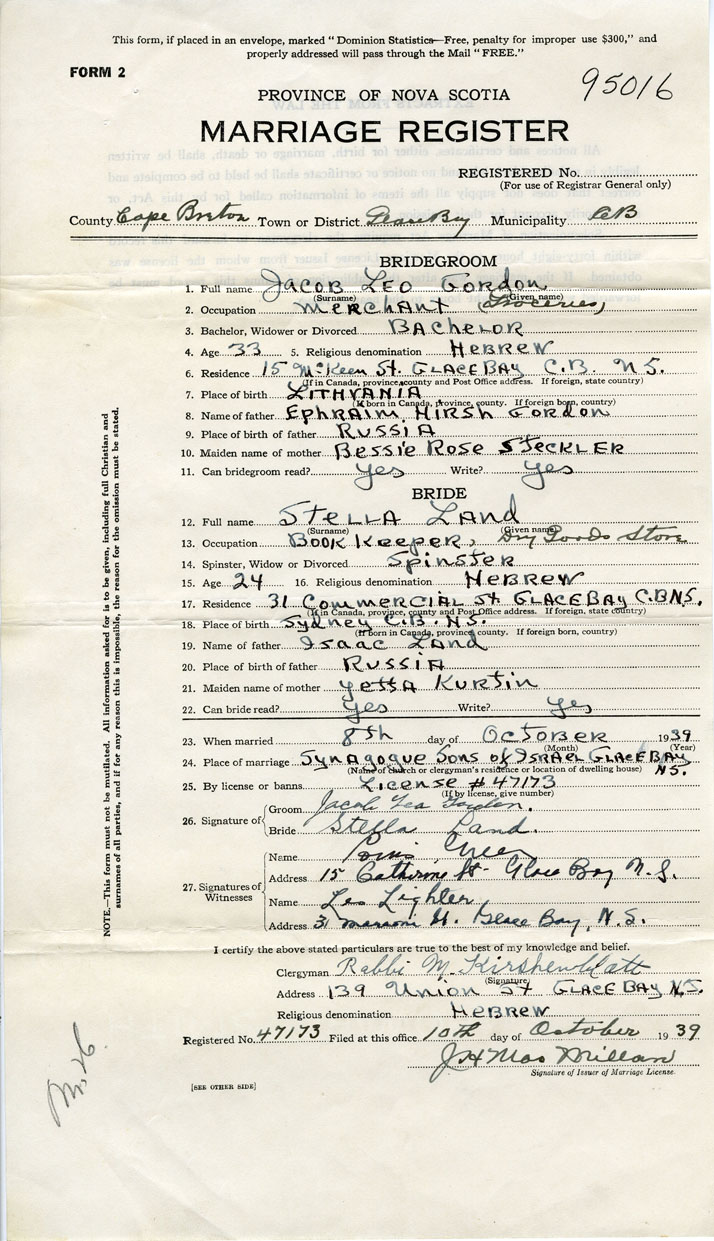 This form, if placed in an envelope, marked "Dominion Statistics—Free, penalty for improper use $300," and
properly addressed will pass through the Mail "FREE."
FORM 2
95016
PROVINCE OF NOVA SCOTIA
MARRIAGE REGISTER
REGISTERED No.
(For use of Registrar General only)
County Cape Breton Town or District Glace Bay Municipality CB
BRIDEGROOM
1. Full name Jacob Leo Gordon
(Surname) (Given name)
2. Occupation Merchant (Groceries)
3. Bachelor, Widower or Divorced Bachelor
4. Age 33 5. Religious denomination Hebrew
6. Residence 15 McKeen St. Glace Bay C.B. N.S.
(If in Canada, province, county and Post Office address. If foreign, state country)
7. Place of birth Lithvania
(If born in Canada, province, county. If foreign born, country)
8. Name of father Ephraim Hirsh Gordon
9. Place of birth of father Russia
10. Maiden name of mother Bessie Rose Steckler
11. Can bridegroom read? yes Write? yes
BRIDE
12. Full name Stella Land
(Surname) (Given name)
13. Occupation Book Keeper, Dry Goods Store
14. Spinster, Widow or Divorced Spinster
15. Age 24 16. Religious denomination Hebrew
17. Residence 31 Commercial St Glace Bay C.B N.S.
(If in Canada, province, county and Post Office address. If foreign, state country)
18. Place of birth Sydney C.B. N.S.
(If born in Canada, province, county. If foreign born, country)
19. Name of father Isaac Land
20. Place of birth of father Russia
21. Maiden name of mother Yetta Kurtin
22. Can bride read? yes Write? yes
23. When married 8th day of October 1939
(Month) (Year)
24. Place of marriage Synagogue Sons of Israel Glace Bay N.S.
(Name of church or clergyman's residence or location of dwelling house)
25. By license or banns License #47173
(If by license, give number)
26. Signature of Groom Jacob Leo Gordon.
Bride Stella Land.
27. Signatures of Witnesses
Name
Address 15 Catherine St. Glace Bay N.S.
Name Leo Lighter
Address 31 St. Glace Bay, N.S.
I certify the above stated particulars are true to the best of my knowledge and belief.
Clergyman Rabbi M. Kirshenblatt
(Signature)
Address 139 Union St Glace Bay N.S.
Religious denomination Hebrew
Registered No. 47173 Filed at this office 10th day of October 1939
J H Mac Millan
Signature of Issuer of Marriage License.
[SEE OTHER SIDE]
NOTE.—This form must not be mutilated. All information asked for is to be given, including full Christian and
surnames of all parties, and if for any reason this is impossible, the reason for the omission must be stated.